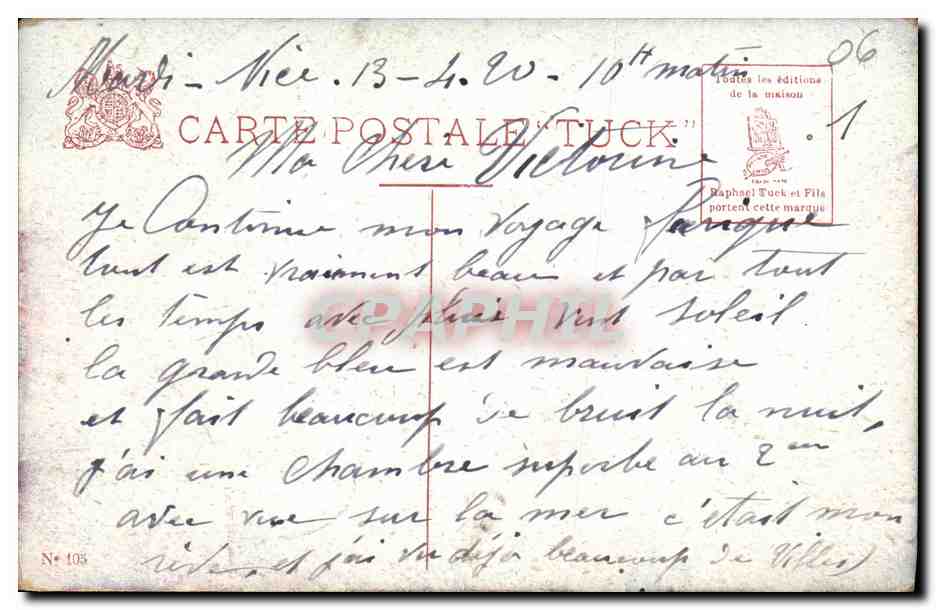 Mardi - Nice . 13 - 4 . 20 - 10 H matin
06
Toutes les éditions
de la maison
1
CARTE POSTALE "TUCK"
Ma Chere Victorine
Raphael Tuck et Fils
portent cette marque
Je Continue mon voyage
tout est vraiment beau et par tout
les temps avec pluie vent soleil
CPAPHIL
la grande bleu est mauvaise
et fait beaucoup de bruit la nuit,
j'ai une chambre superbe au 2em
avec vue sur la mer c'était mon
rève, et j'ai vu déjà beaucoup de Villes)
No 105